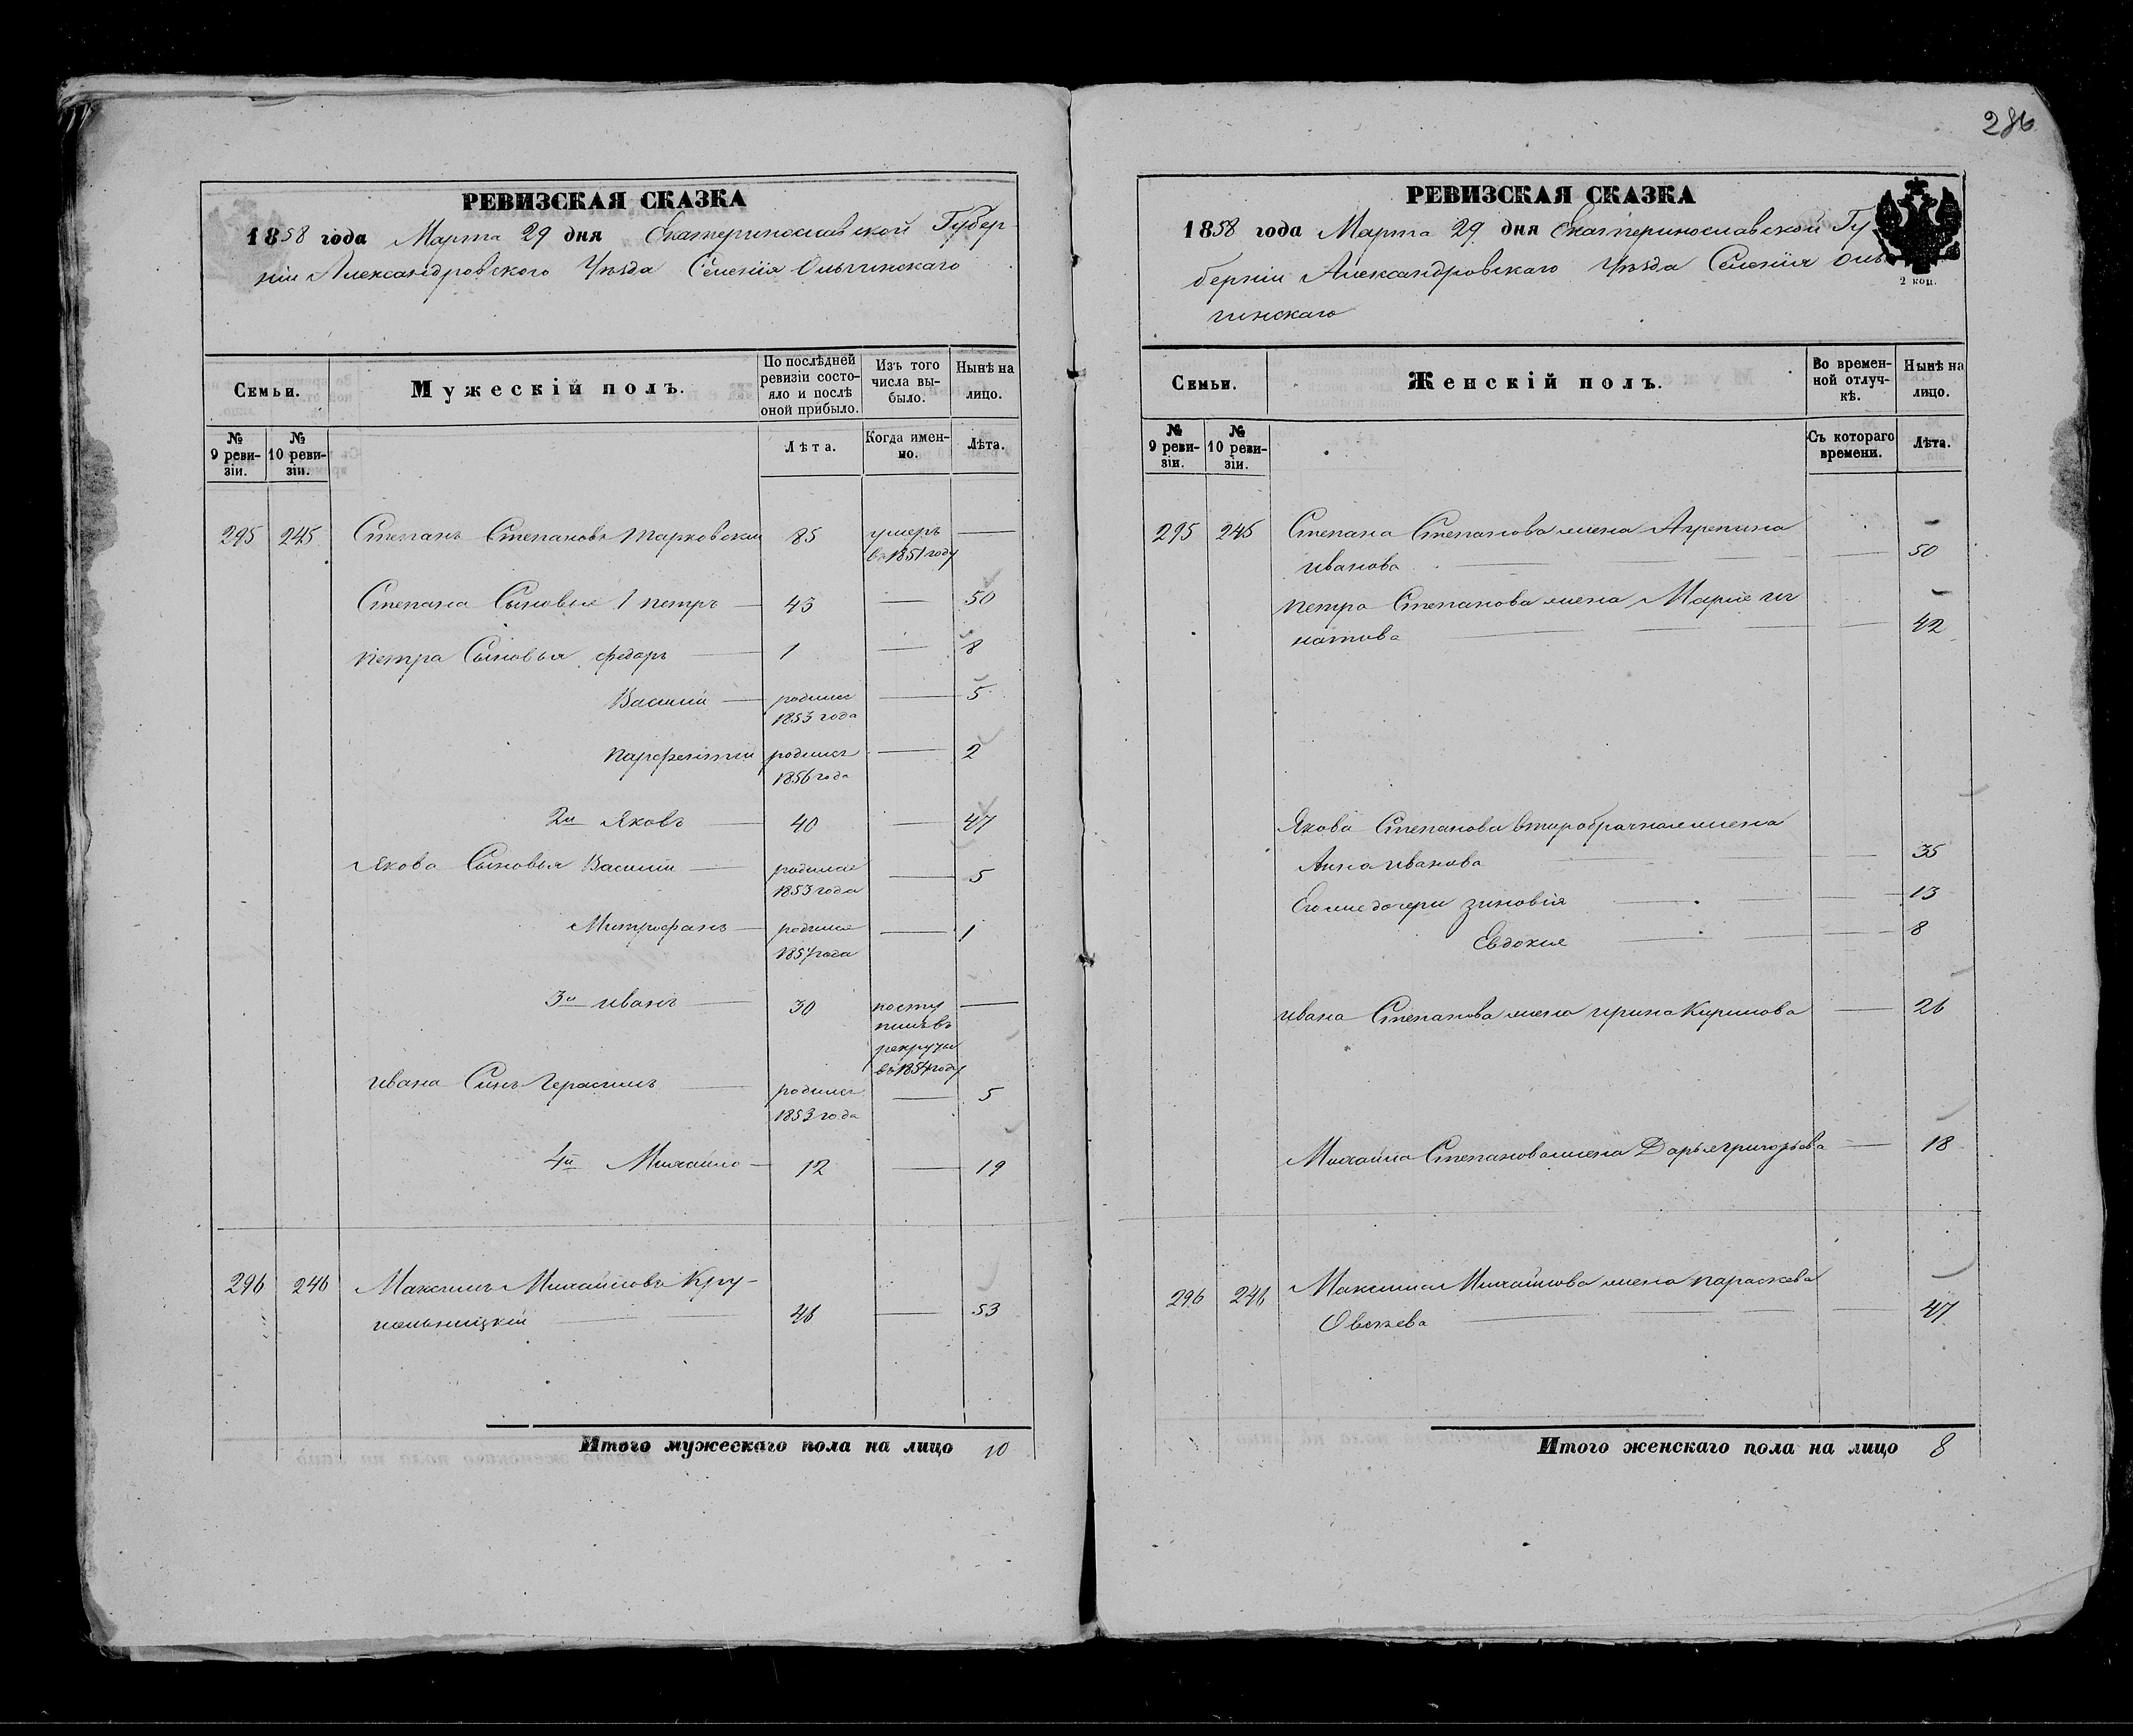 286
РЕВИЗСКАЯ СКАЗКА
1858 года Марта 29 дня Екатеринославской Губер-
ніи Александровского Уѣзда Селенія Ольгинскаго
Семьи.
Мужескій полъ.
По послѣдней ревизіи состояло и послѣ оной прибыло.
Изъ того числа выбыло.
Нынѣ на лицо.
№ 9 ревизіи.
№ 10 ревизіи.
Лѣта.
Когда именно.
Лѣта.
295 245 Степанъ Степановъ Тарковскій 85 умеръ —
въ 1851 году
Степана Сыновья 1 петръ — 43 — 50
петра Сыновья федоръ — 1 — 8
Василій — родился — 5
1853 года
парфентій родился — 2
1856 года
2й Яковъ — 40 — 47
Якова Сыновья Василій — родился — 5
1853 года
Митрофанъ — родился — 1
1857 года
3й иванъ — 30 посту —
пилъ въ
рекруты
въ 1854 году
ивана Сынъ Герасимъ — родился — 5
1853 года
4й Михайло — 12 — 19
296 246 Максимъ Михайловъ Кру-
польницкій — 46 — 53
Итого мужескаго пола на лицо 10
РЕВИЗСКАЯ СКАЗКА
1858 года Марта 29 дня Екатеринославской Гу
берніи Александровскаго Уѣзда Селенія Оль
гинскаго
2 коп.
Семьи.
Женскій полъ.
Во временной отлучкѣ.
Нынѣ на лицо.
№ 9 ревизіи.
№ 10 ревизіи.
Съ котораго времени.
Лѣта.
295 245 Степана Степанова жена Агрепина
иванова — — 50
петра Степанова жена Марие иг
натова — — 42
Якова Степанова второбрачная жена
Анна иванова — 35
Его же дочери зиновія — 13
Евдокия — 8
ивана Степанова жена ирина Кирилова — 26
Михайла Степанова жена Дарья григорьева — 18
296 246 Максима Михайлова жена параскева
Овсѣева — — 47
Итого женскаго пола на лицо 8